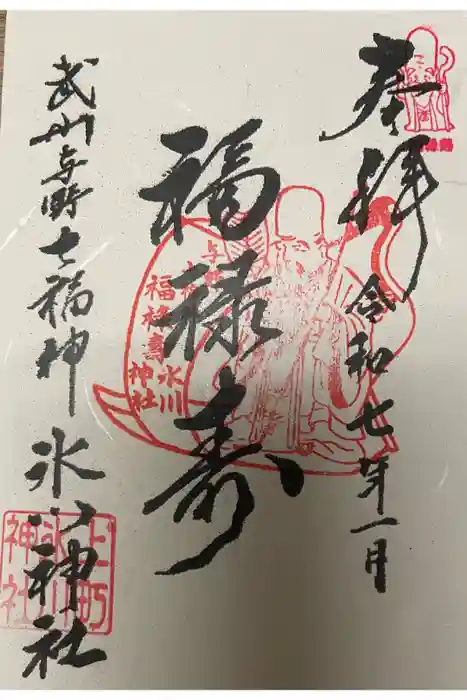 奉拝
令和七年一月
福禄寿
武州与野七福神 氷川神社
福禄寿
氷川
神社
上町
氷川
神社